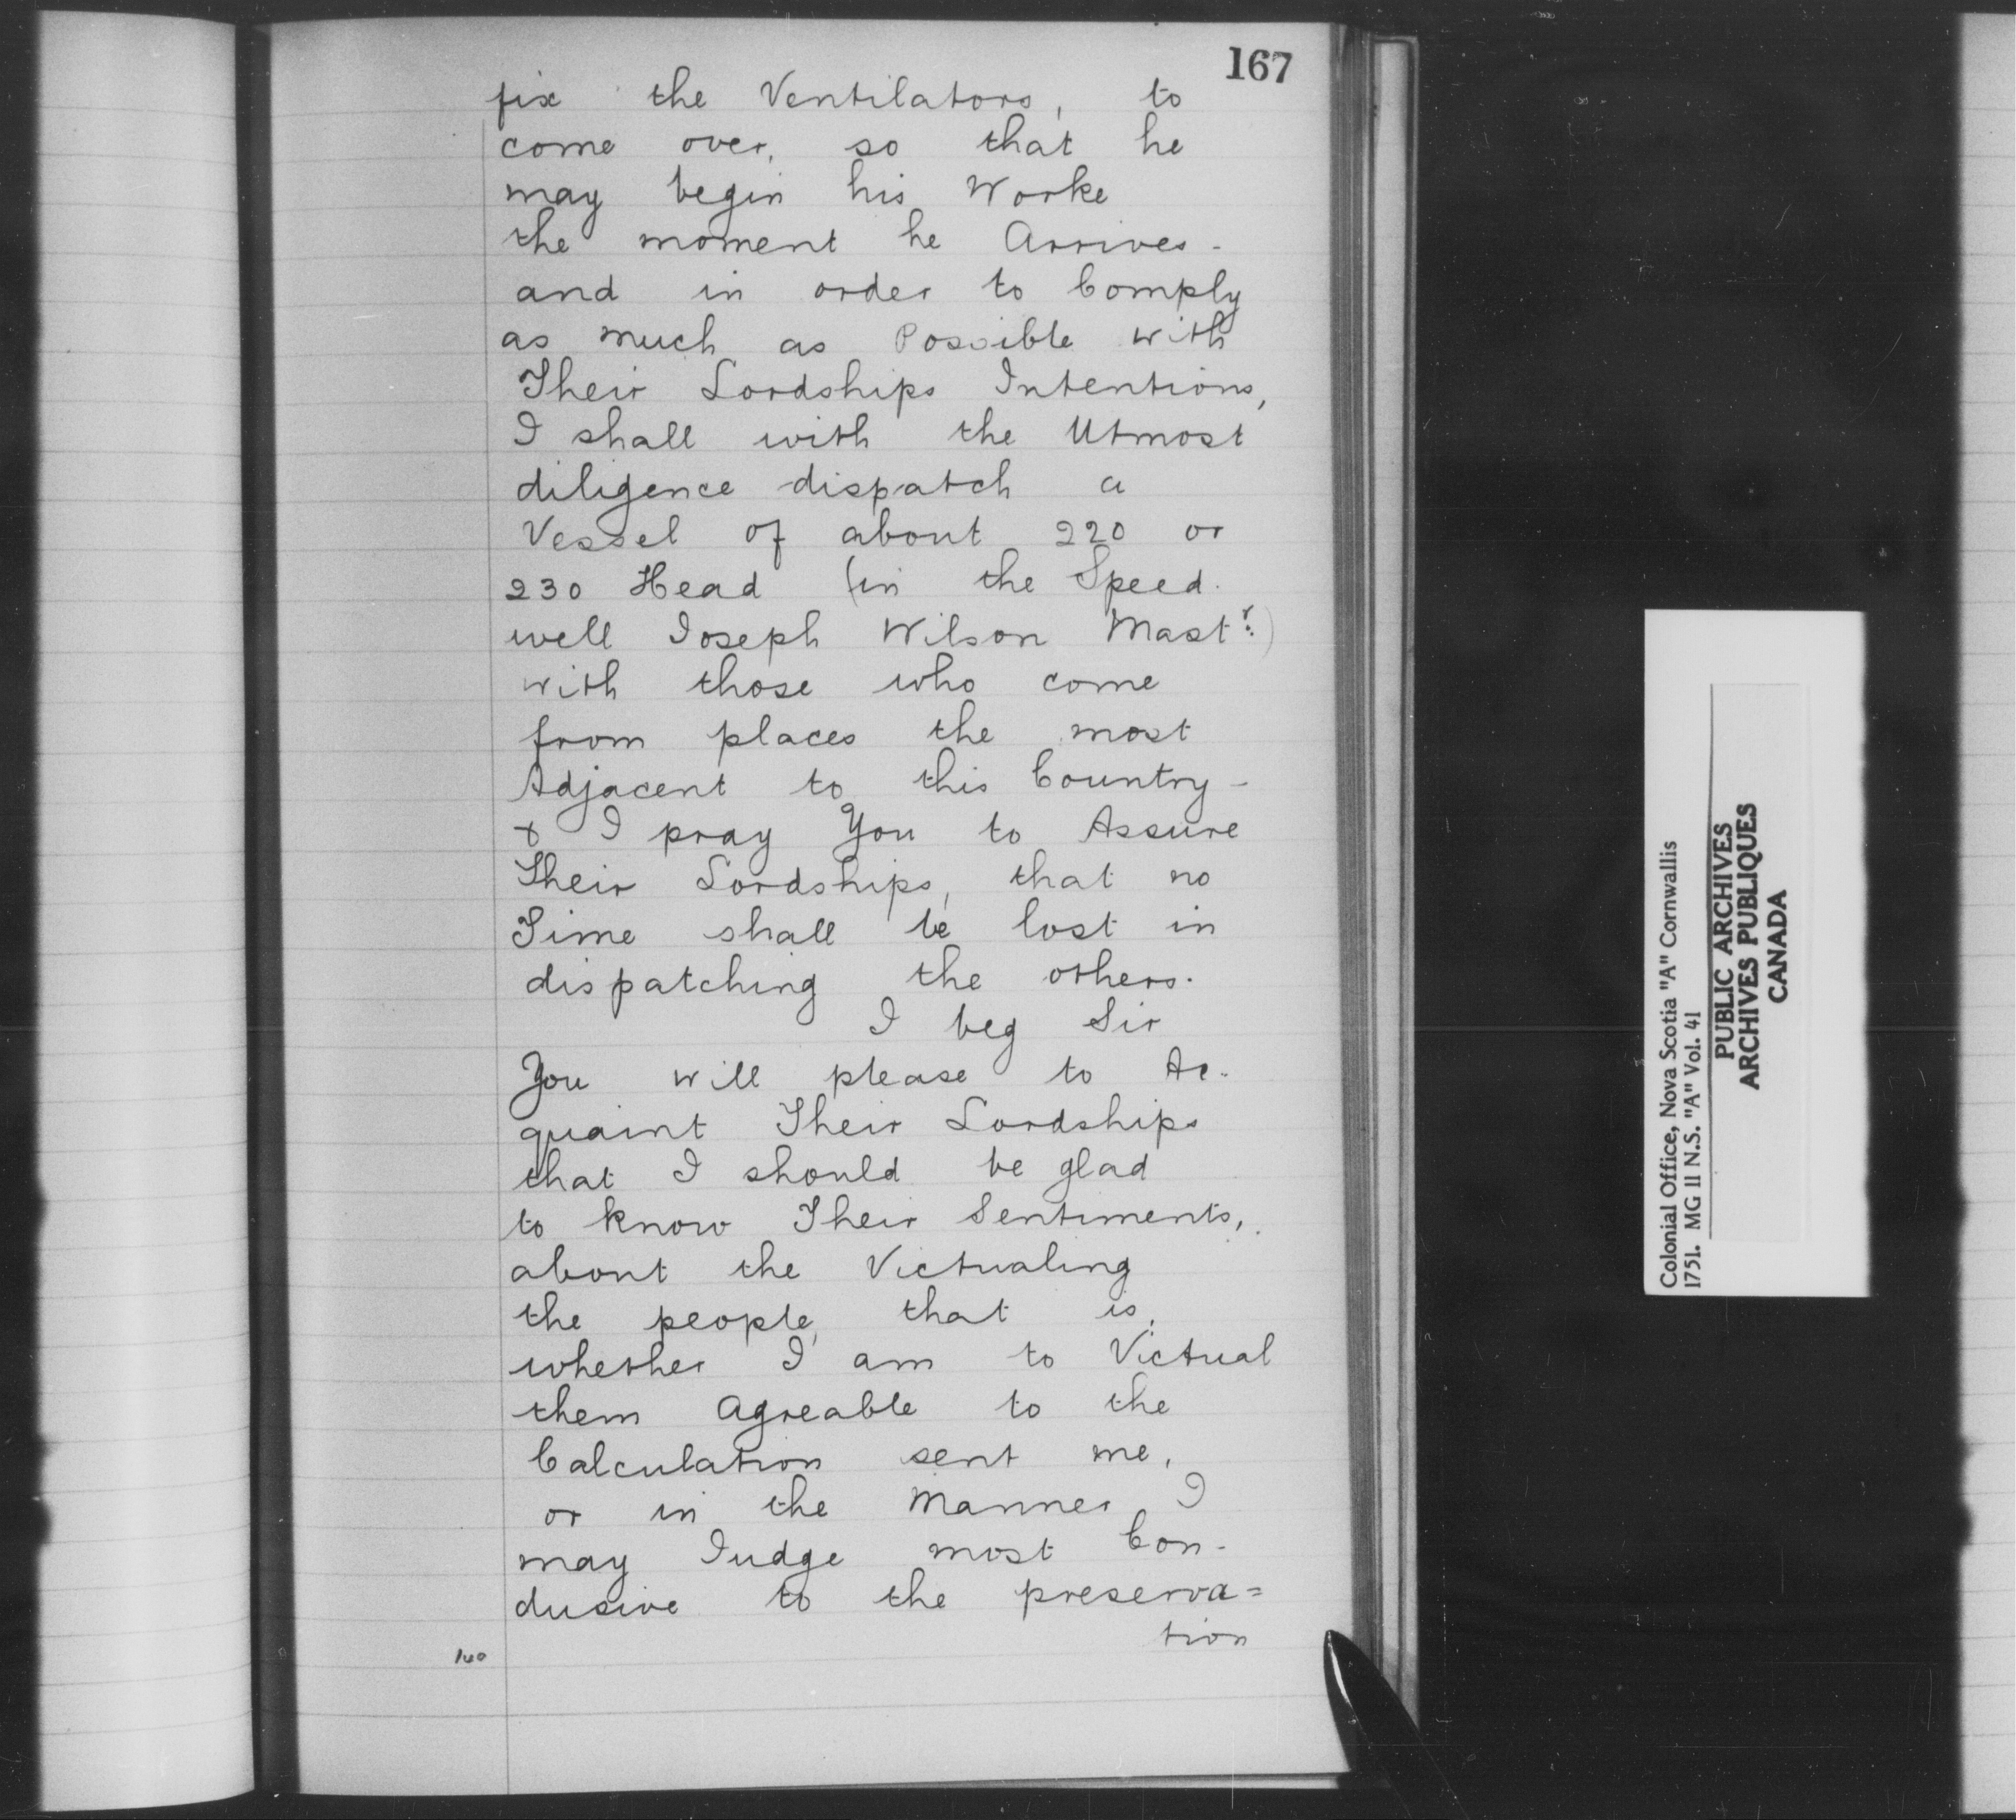 167
fix the Ventilators, to
come over, so that he
may begin his Worke
the moment he Arrives -
and in order to Comply
as much as Possible with
Their Lordships Intentions,
I shall with the Utmost
diligence dispatch a
Vessel of about 220 or
230 Head (in the Speed-
well Joseph Wilson Mastr.)
with those who come
from places the most
Adjacent to this Country -
& I pray You to Assure
Their Lordships, that no
Time shall be lost in
dispatching the others.
I beg Sir
You will please to Ac-
quaint Their Lordships
that I should be glad
to know Their Sentiments,
about the Victualing
the people, that is,
whether I am to Victual
them Agreable to the
Calculation sent me,
or in the Manner I
may Judge most Con-
dusive to the preserva=
tion
140
Colonial Office, Nova Scotia "A" Cornwallis
1751. MG 11 N.S. "A" Vol. 41
PUBLIC ARCHIVES
ARCHIVES PUBLIQUES
CANADA